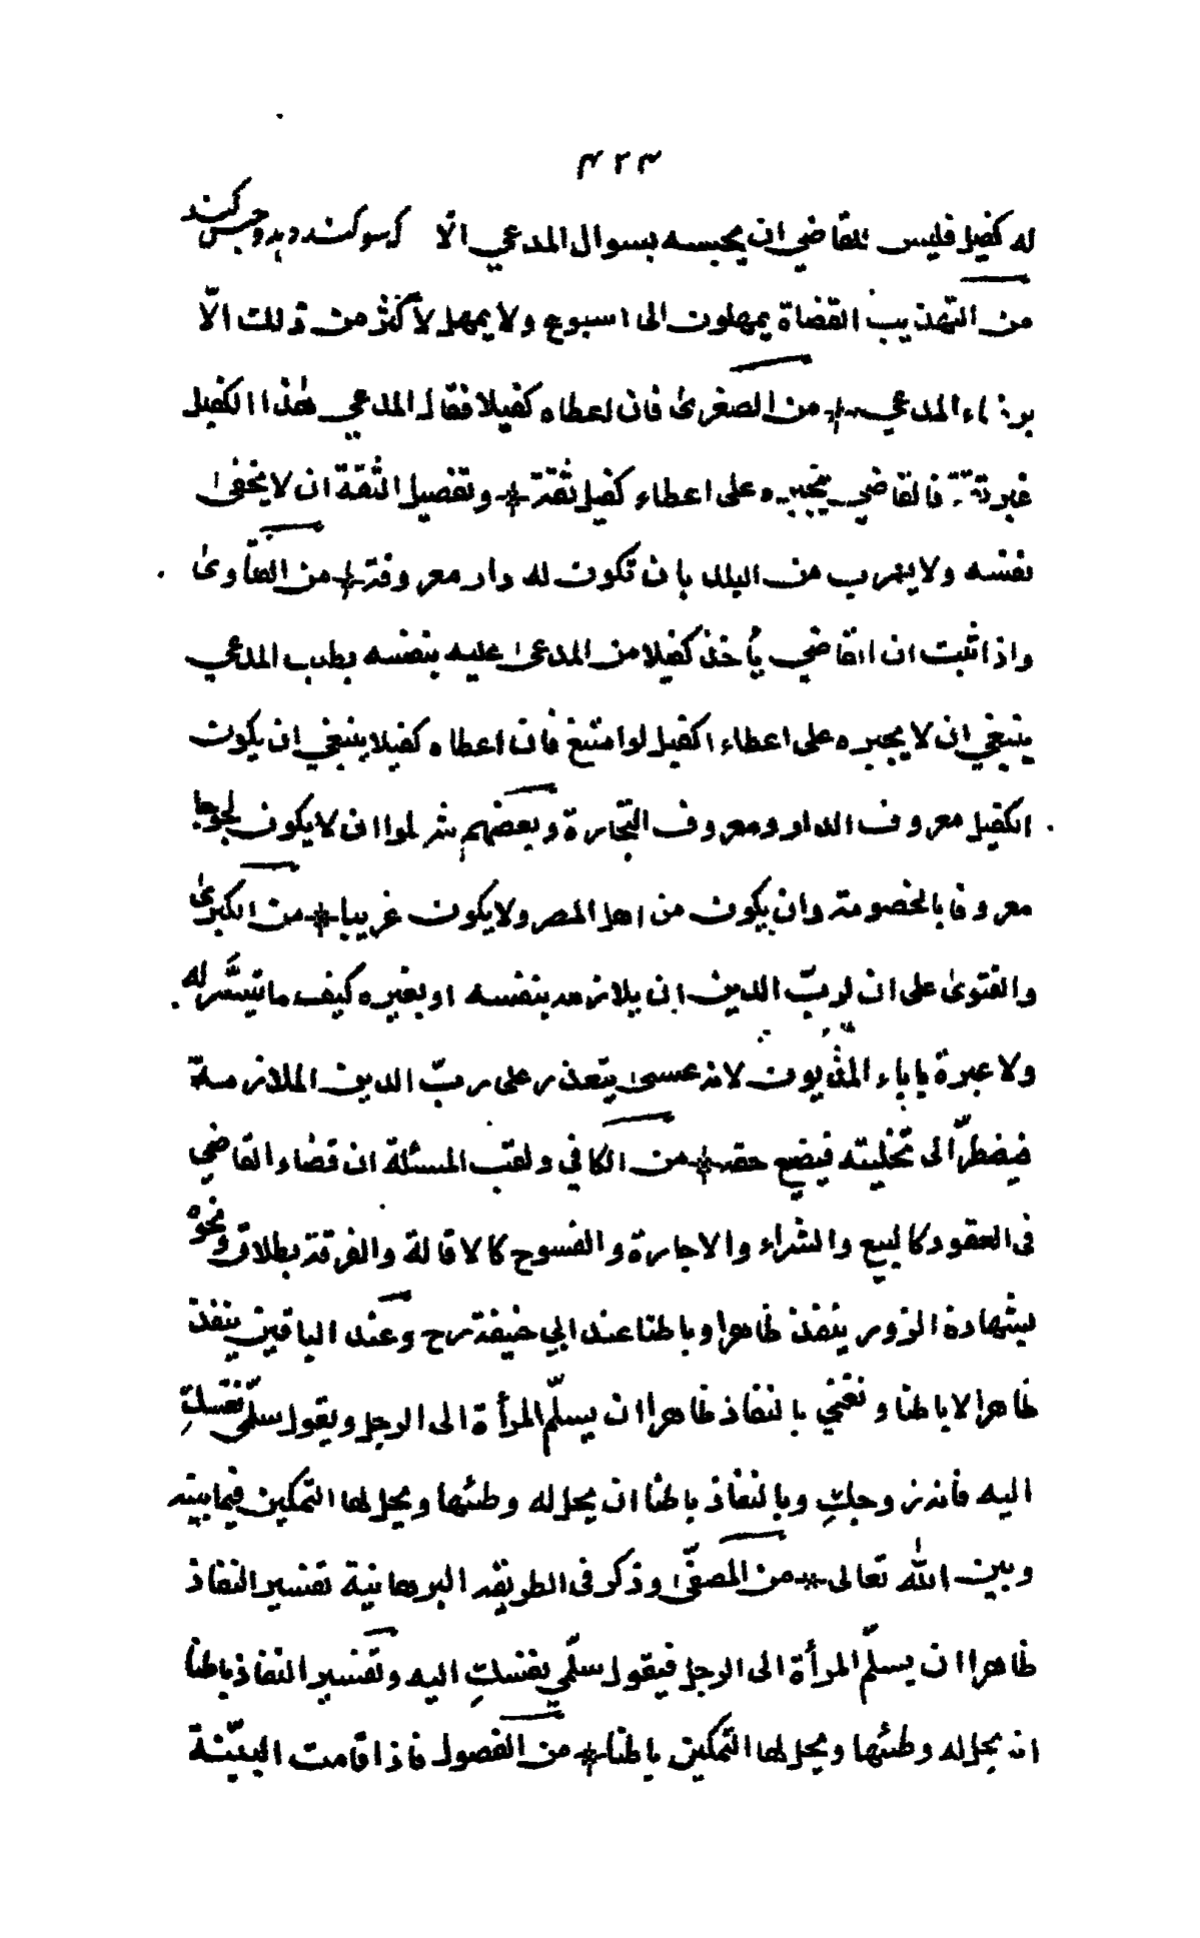 ٤٢٣
له كفيل فليس للقاضي ان يحبسه بسوال المدعي الّا كه سوكند دهد و حبس كند
من التهذيب القضاة يمهلون الى اسبوع ولا يمهل لأكثر من ذلك الّا
برضاء المدعي * من الصغرىٰ فان اعطاه كفيلا فقال المدعي هٰذا الكفيل
غير ثقة فالقاضي يجبره على اعطاء كفيل ثقة * وتفصيل الثقة ان لا يخفىٰ
نفسه ولا يهرب من البلد بان تكون له دار معروفة * من الفتاوىٰ
واذا ثبت ان القاضي يأخذ كفيلا من المدعىٰ عليه بنفسه بطلب المدعي
ينبغي ان لا يجبره على اعطاء الكفيل لو امتنع فان اعطاه كفيلا ينبغي ان يكون
الكفيل معروف الدار ومعروف التجارة وبعضهم شرطوا ان لا يكون لجوجا
معروفا بالخصومة وان يكون من اهل المصر ولا يكون غريبا * من الكبرىٰ
والفتوىٰ على ان لربّ الدين ان يلازمه بنفسه او بغيره كيف ما تيسّر له
ولا عبرة باباء المديون لانه عسىٰ يتعذر على ربّ الدين الملازمة
فيضطرّ الى تخليته فيضيع حقه * من الكافي ولقب المسئلة ان قضاء القاضي
فى العقود كالبيع والشراء والاجارة والفسوخ كالاقالة والفرقة بطلاق ونحوه
بشهادة الزور ينفذ ظاهرا وباطنا عند ابي حنيفة رح وعند الباقين ينفذ
ظاهرا لا باطنا ونعني بالنفاذ ظاهرا ان يسلّم المرأة الى الرجل ويقول سلّمى نفسكِ
اليه فانه زوجكِ وبالنفاذ باطنا ان يحل له وطئها ويحل لها التمكين فيما بينه
وبين اللّٰه تعالى * من المصفّىٰ وذكر فى الطريقه البرهانية تفسير النفاذ
ظاهرا ان يسلّم المرأة الى الرجل فيقول سلّمي نفسكِ اليه وتفسير النفاذ باطنا
انه يحل له وطئها ويحل لها التمكين باطنا * من الفصول فاذا قامت البيّنة